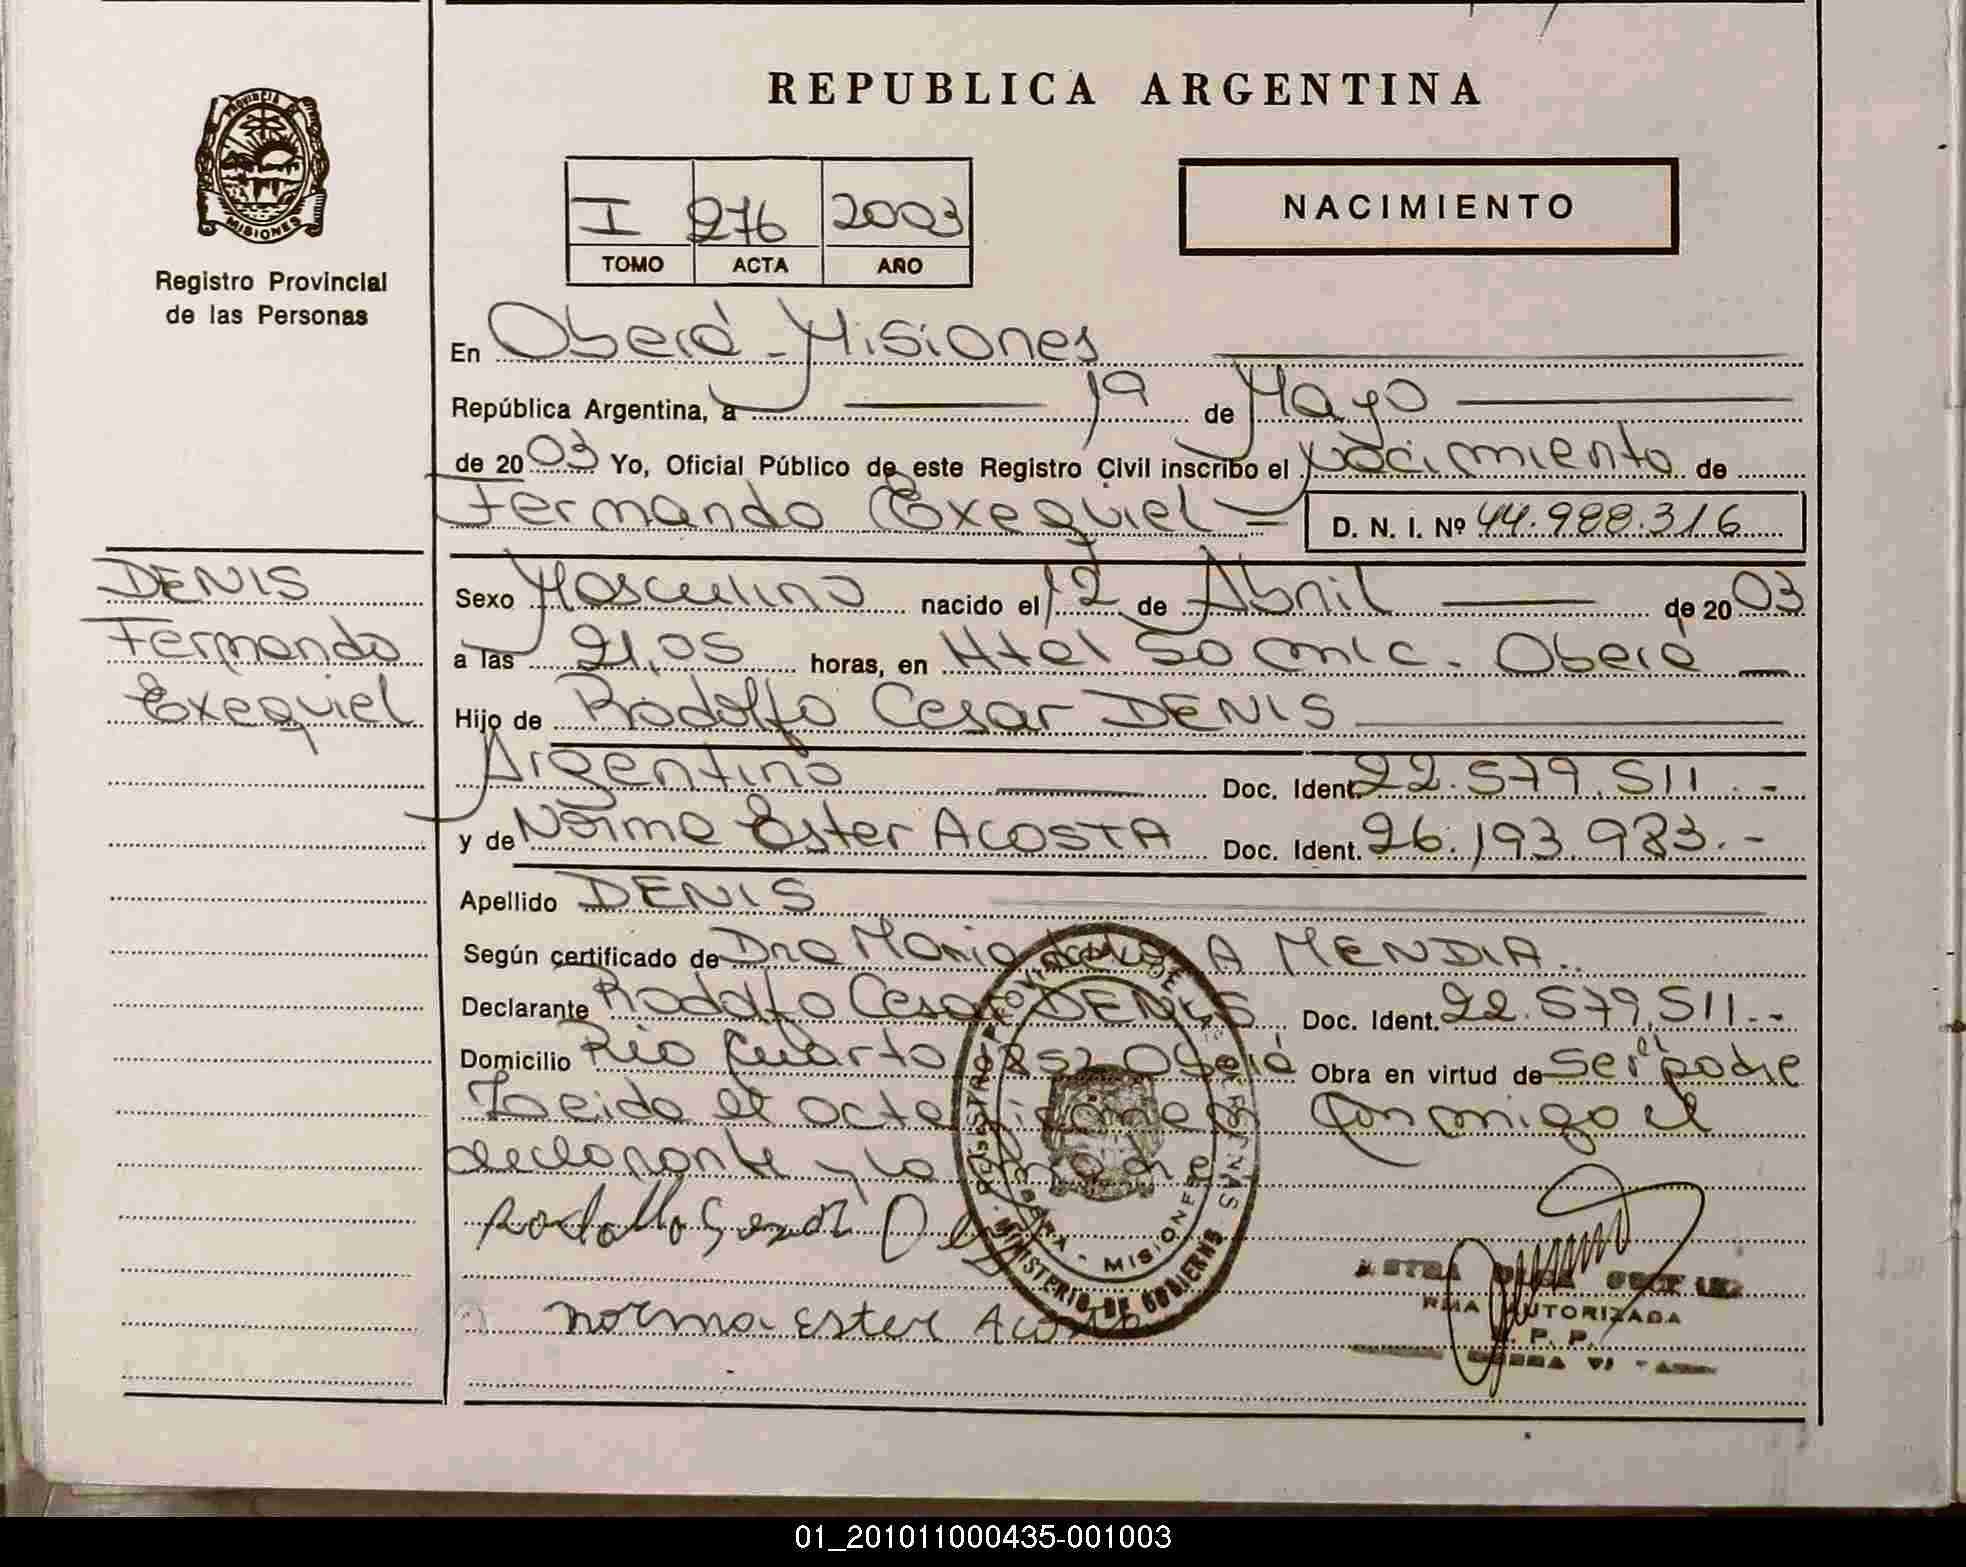 REPUBLICA ARGENTINA
PROVINCIA DE
MISIONES
Registro Provincial
de las Personas
I 276 2003
TOMO ACTA AÑO
NACIMIENTO
En Oberá - Misiones
República Argentina, a 19 de Mayo
de 2003 Yo, Oficial Público de este Registro Civil inscribo el Nacimiento de
Fernando Exequiel D. N. I. Nº 44.988.316
DENIS
Fernando
Exequiel
Sexo Masculino nacido el 12 de Abril de 2003
a las 21,05 horas, en Htal Samic. Oberá
Hijo de Rodolfo Cesar DENIS
Argentino Doc. Ident. 22.579.511.-
y de Norma Ester ACOSTA Doc. Ident. 26.193.983.-
Apellido DENIS
Según certificado de Dra Maria A MENDIA.
Declarante Rodolfo Cesar DENIS Doc. Ident. 22.579.511.-
Domicilio Rio Cuarto 1852 Oberá Obra en virtud de ser el padre
Leida el acta firman Conmigo el
declarante y la madre
Rodolfo Cesar
Norma Ester Acosta
MISIONES
MINISTERIO DE GOBIERNO
AUTORIZADA
P. P.
01_201011000435-001003